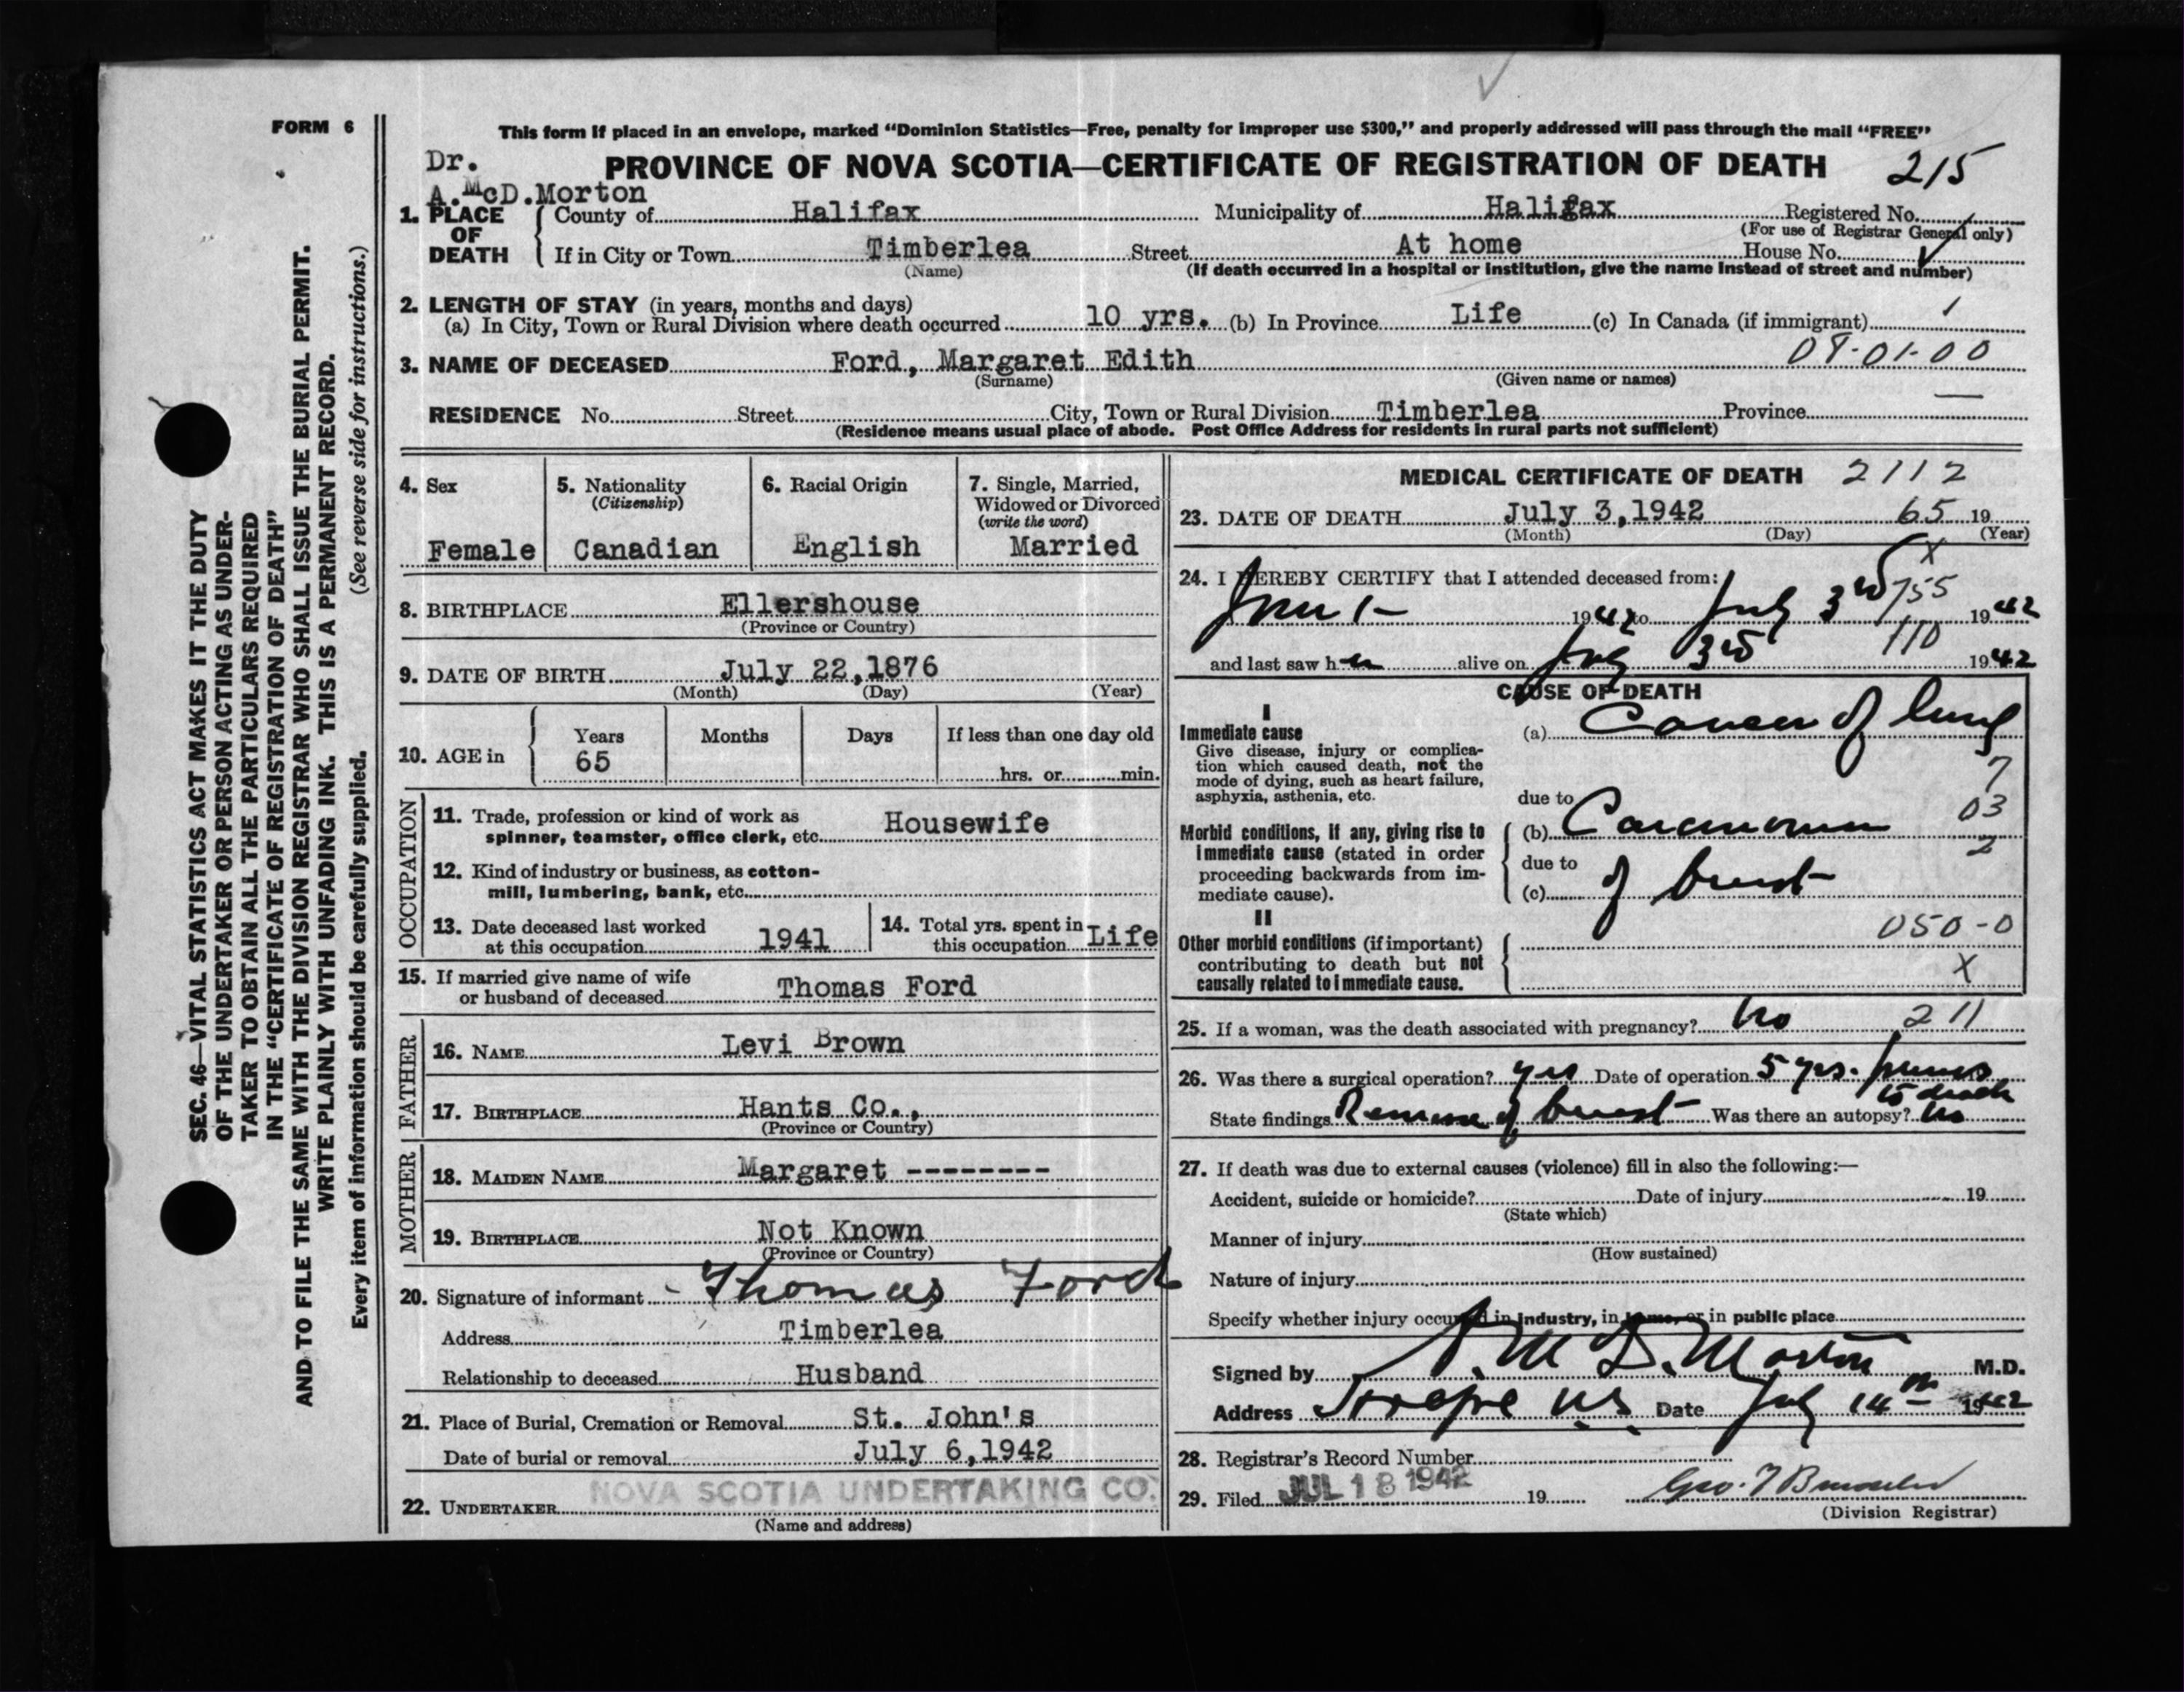 FORM 6
This form if placed in an envelope, marked “Dominion Statistics—Free, penalty for improper use $300,” and properly addressed will pass through the mail “FREE”
Dr.
A. McD. Morton
PROVINCE OF NOVA SCOTIA—CERTIFICATE OF REGISTRATION OF DEATH 215
1. PLACE OF DEATH
County of Halifax Municipality of Halifax Registered No.
(For use of Registrar General only)
If in City or Town Timberlea Street At home House No.
(Name) (If death occurred in a hospital or institution, give the name instead of street and number)
2. LENGTH OF STAY (in years, months and days)
(a) In City, Town or Rural Division where death occurred 10 yrs. (b) In Province Life (c) In Canada (if immigrant)
3. NAME OF DECEASED Ford, Margaret Edith
(Surname) (Given name or names)
RESIDENCE No. Street City, Town or Rural Division Timberlea Province
(Residence means usual place of abode. Post Office Address for residents in rural parts not sufficient)
4. Sex
Female
5. Nationality
(Citizenship)
Canadian
6. Racial Origin
English
7. Single, Married,
Widowed or Divorced
(write the word)
Married
8. BIRTHPLACE Ellershouse
(Province or Country)
9. DATE OF BIRTH July 22, 1876
(Month) (Day) (Year)
10. AGE in Years Months Days If less than one day old
65 hrs. or min.
OCCUPATION
11. Trade, profession or kind of work as
spinner, teamster, office clerk, etc. Housewife
12. Kind of industry or business, as cotton-
mill, lumbering, bank, etc.
13. Date deceased last worked
at this occupation 1941
14. Total yrs. spent in
this occupation Life
15. If married give name of wife
or husband of deceased Thomas Ford
FATHER
16. NAME Levi Brown
17. BIRTHPLACE Hants Co.,
(Province or Country)
MOTHER
18. MAIDEN NAME Margaret --------
19. BIRTHPLACE Not Known
(Province or Country)
20. Signature of informant Thomas Ford
Address Timberlea
Relationship to deceased Husband
21. Place of Burial, Cremation or Removal St. John's
Date of burial or removal July 6, 1942
22. UNDERTAKER NOVA SCOTIA UNDERTAKING CO.
(Name and address)
MEDICAL CERTIFICATE OF DEATH 2112
23. DATE OF DEATH July 3, 1942 65 19
(Month) (Day) (Year)
24. I HEREBY CERTIFY that I attended deceased from:
1942 to July 3rd 1942
and last saw her alive on July 3rd 110 1942
CAUSE OF DEATH
I
Immediate cause
Give disease, injury or complica-
tion which caused death, not the
mode of dying, such as heart failure,
asphyxia, asthenia, etc.
(a) Cancer of lung
7
due to
03
Morbid conditions, if any, giving rise to
immediate cause (stated in order
proceeding backwards from im-
mediate cause).
(b) Carcinoma
2
due to
(c) of breast
II
Other morbid conditions (if important)
contributing to death but not
causally related to immediate cause.
050-0
X
25. If a woman, was the death associated with pregnancy? No 211
26. Was there a surgical operation? yes Date of operation 5 yrs. previous to death
State findings Removal of breast Was there an autopsy? No
27. If death was due to external causes (violence) fill in also the following:—
Accident, suicide or homicide? Date of injury 19
(State which)
Manner of injury
(How sustained)
Nature of injury
Specify whether injury occurred in industry, in home, or in public place
Signed by A. McD. Morton M.D.
Address N.S. Date July 14th 1942
28. Registrar's Record Number
29. Filed JUL 18 1942 19
(Division Registrar)
SEC. 46—VITAL STATISTICS ACT MAKES IT THE DUTY
OF THE UNDERTAKER OR PERSON ACTING AS UNDER-
TAKER TO OBTAIN ALL THE PARTICULARS REQUIRED
IN THE “CERTIFICATE OF REGISTRATION OF DEATH”
AND TO FILE THE SAME WITH THE DIVISION REGISTRAR WHO SHALL ISSUE THE BURIAL PERMIT.
WRITE PLAINLY WITH UNFADING INK. THIS IS A PERMANENT RECORD.
Every item of information should be carefully supplied. (See reverse side for instructions.)